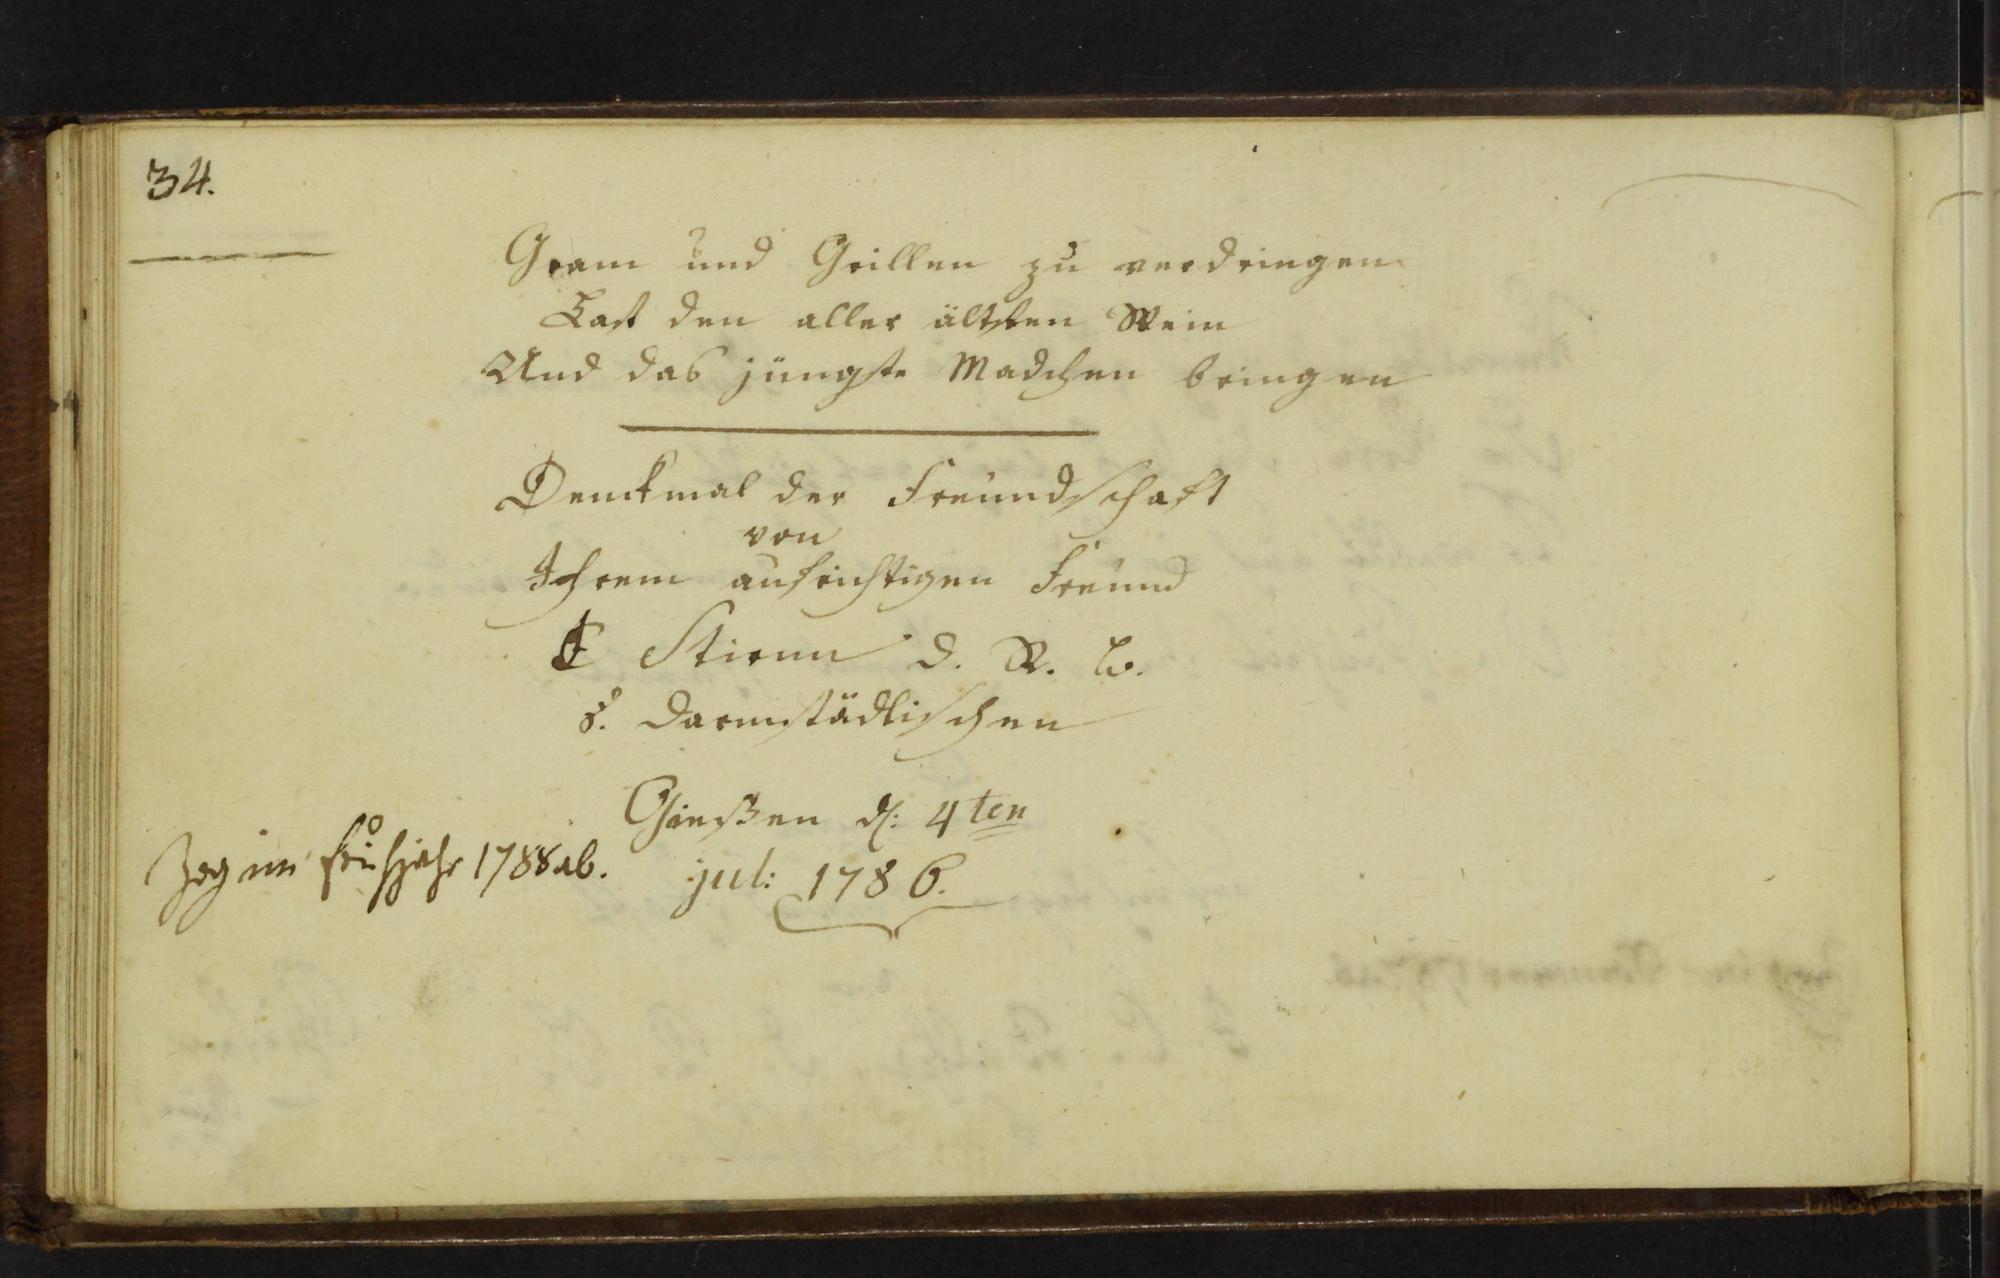 34.
Gram und Grillen zu verdringen
Last den aller ältsten Wein
Und das jüngste Madchen bringen
Denckmal der Freundschaft
von
Ihrem aufrichtigen Freund
Stirnn d. R. b.
a. Darmstädtischen
Gießen d: 4ten
jul: 1786.
Zog im Frühjahr 1788 ab.